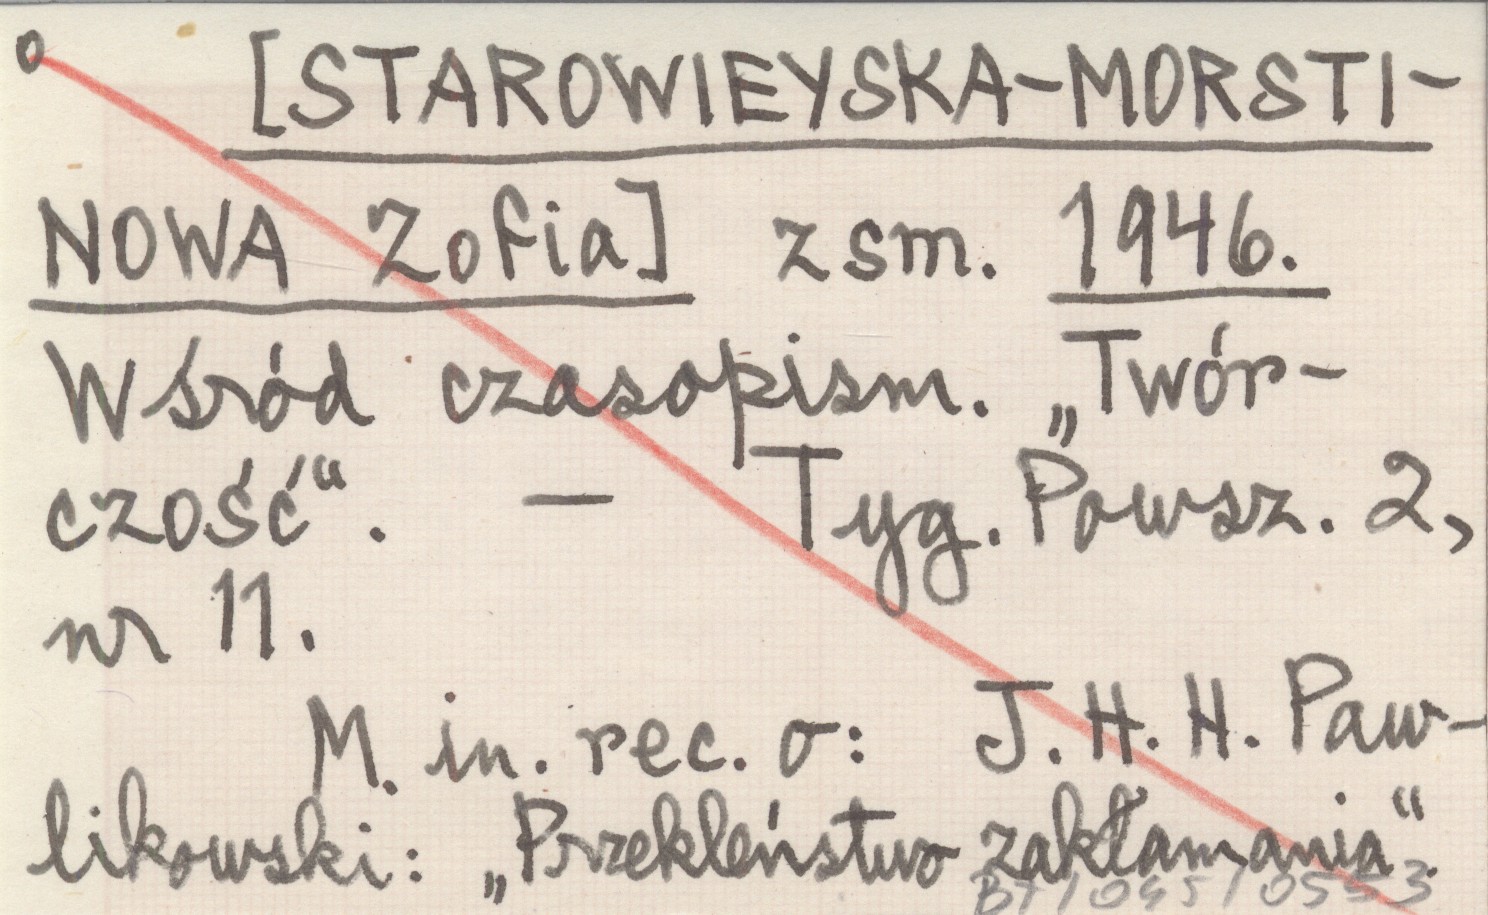 [STAROWIEYSKA-MORSTI-
NOWA Zofia] zsm. 1946.
Wśród czasopism. „Twór-
czość“. — Tyg. Powsz. 2,
nr 11.
M. in. rec. o: J. H. H. Paw-
likowski: „Przekleństwo zakłamania“.